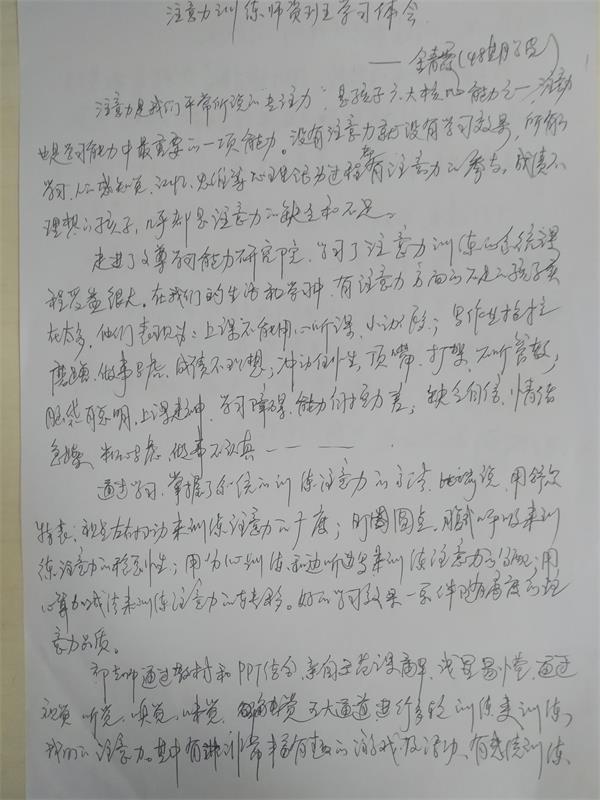 注意力训练师资班学习体会
——全青(48期学员)
注意力是我们平常所说的"专注力",是孩子六大核心能力之一,注意力
也是学习能力中最重要的一项能力。没有注意力就没有学习效果,所有的
学习,人的感知觉,记忆,思维等心理认知过程都有注意力的参与。成绩不
理想的孩子,几乎都是注意力的缺乏和不足。
走进了文尊学习能力研究院,学习了注意力训练的系统课
程受益很大。在我们的生活和学习中,有注意力方面的不足的孩子实
在太多,他们表现为:上课不能用心听课,小动作多;写作业拖拉
磨蹭,做事马虎,成绩不理想;冲动任性,顶嘴,打架,不听管教;
脑袋聪明,上课走神,学习障碍,能力价差;缺乏自信,情绪
急躁,粗心马虎,做事不认真————
通过学习,掌握了系统的训练注意力的方法,比如说,用舒尔
特表,视点左右移动来训练注意力的广度;用圆点,腹式呼吸来训
练注意力的稳定性;用分心训练和边听边写来训练注意力的分配;用
心算的方法来训练注意力的转移。好的学习效果一定伴随着高度的注
意力品质。
老师通过教材和PPT结合,亲自示范课,浅显易懂,通过
视觉,听觉,嗅觉,味觉,触觉五大通道进行多轮训练来训练
我们的注意力。其中有非常丰富有趣的游戏及活动,有感统训练,